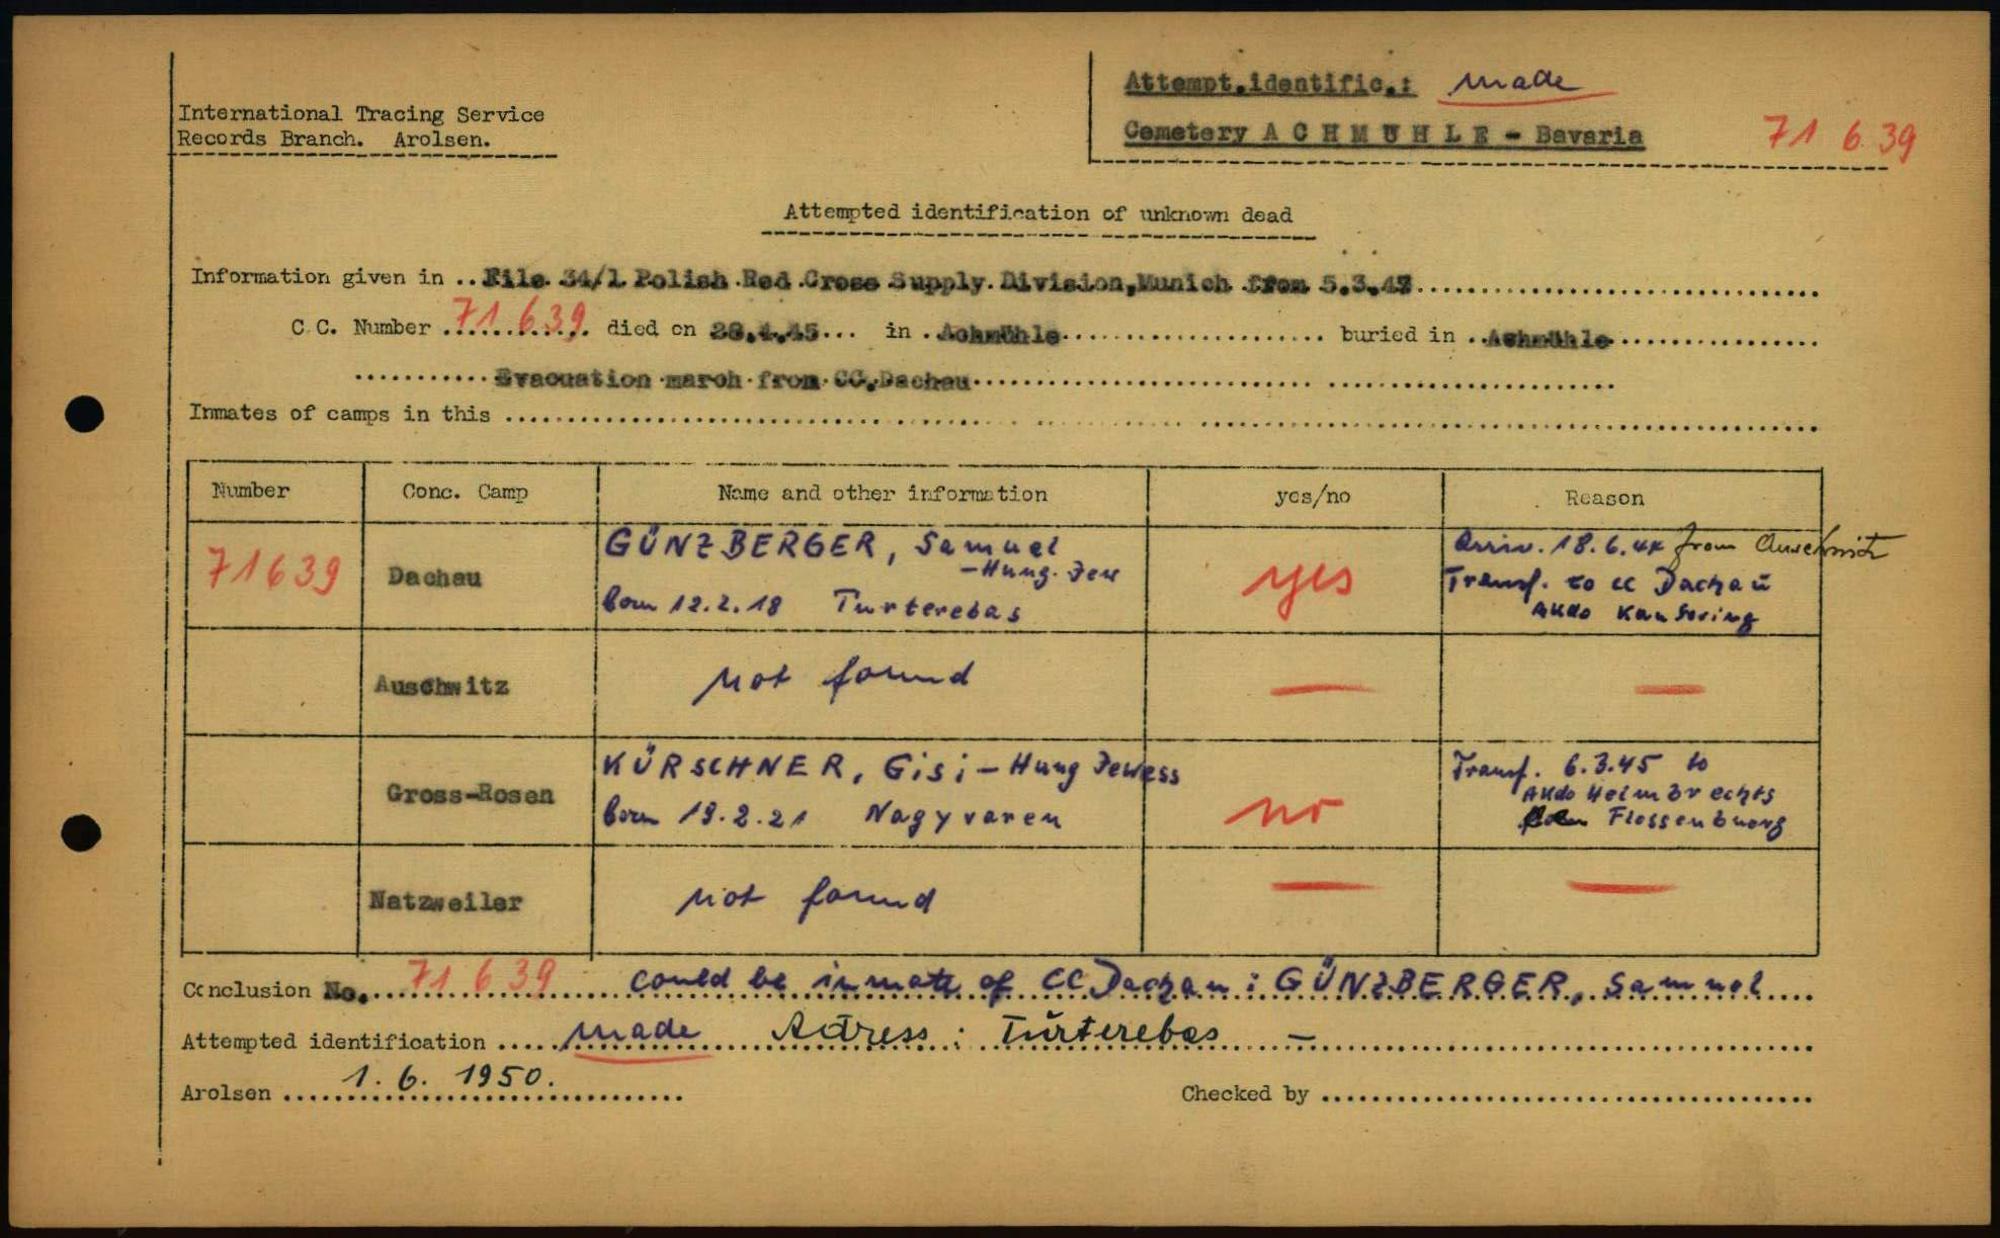 Attempt.identific.: made
International Tracing Service
Records Branch. Arolsen.
Cemetery A C H M Ü H L E - Bavaria 71 6 39
Attempted identification of unknown dead
Information given in ..File 34/1 Polish Red Cross Supply Division, Munich from 5.3.47
C.C. Number 71 639 died on 28.4.45 in Achmühle buried in Achmühle
Evacuation march from CC.Dachau
Inmates of camps in this
Number Conc. Camp Name and other information yes/no Reason
71639 Dachau GÜNZBERGER, Samuel yes Arriv. 18.6.44 from Auschwitz
-Hung. Jew Transf. to CC Dachau
born 12.2.18 Turterebas AKdo Kaufering
Auschwitz not found — —
Gross-Rosen KÜRSCHNER, Gisi - Hung Jewess no Transf. 6.3.45 to
born 19.2.21 Nagyvaren AKdo Helmbrechts
Flossenbuerg
Natzweiler not found — —
Conclusion No. 71 6 39 could be inmate of CC Dachau: GÜNZBERGER, Samuel
Attempted identification made Adress: Türterebes —
Arolsen 1. 6. 1950. Checked by